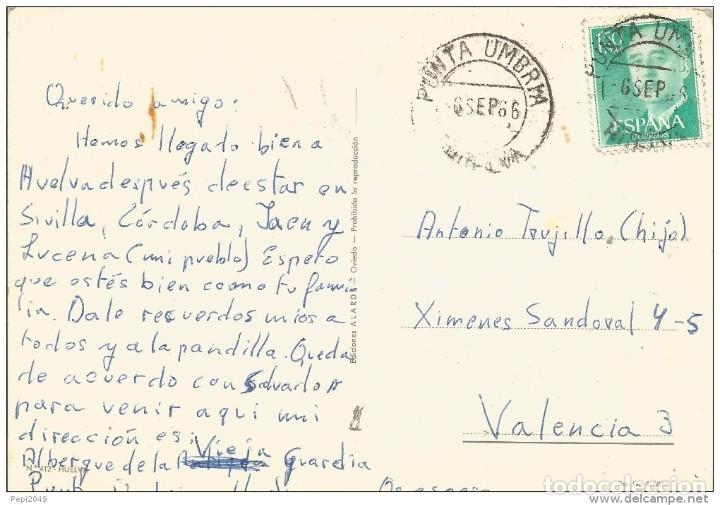 Querido amigo:
Hemos llegado bien a
Huelva después de estar en
Sivilla, Córdoba, Jaen y
Lucena (mi pueblo) Espero
que estés bien como tu fami
lia. Dale recuerdos mios a
todos y a la pandilla. Queda
de acuerdo con Salvador
para venir aquí mi
dirección es:
Vieja
Albergue de la Guardia
Nº 412 - HUELVA
Ediciones ALARDE - Oviedo - Prohibida la reproducción
PUNTA UMBRIA
6 SEP 66
HUELVA
PUNTA UM
6 SEP. 66
1,50
ESPAÑA
CORREOS
Antonio Trujillo (hijo)
Ximenes Sandoval 4-5
Valencia 3
Pepi2049
todocoleccion.net
www.delcampe.net